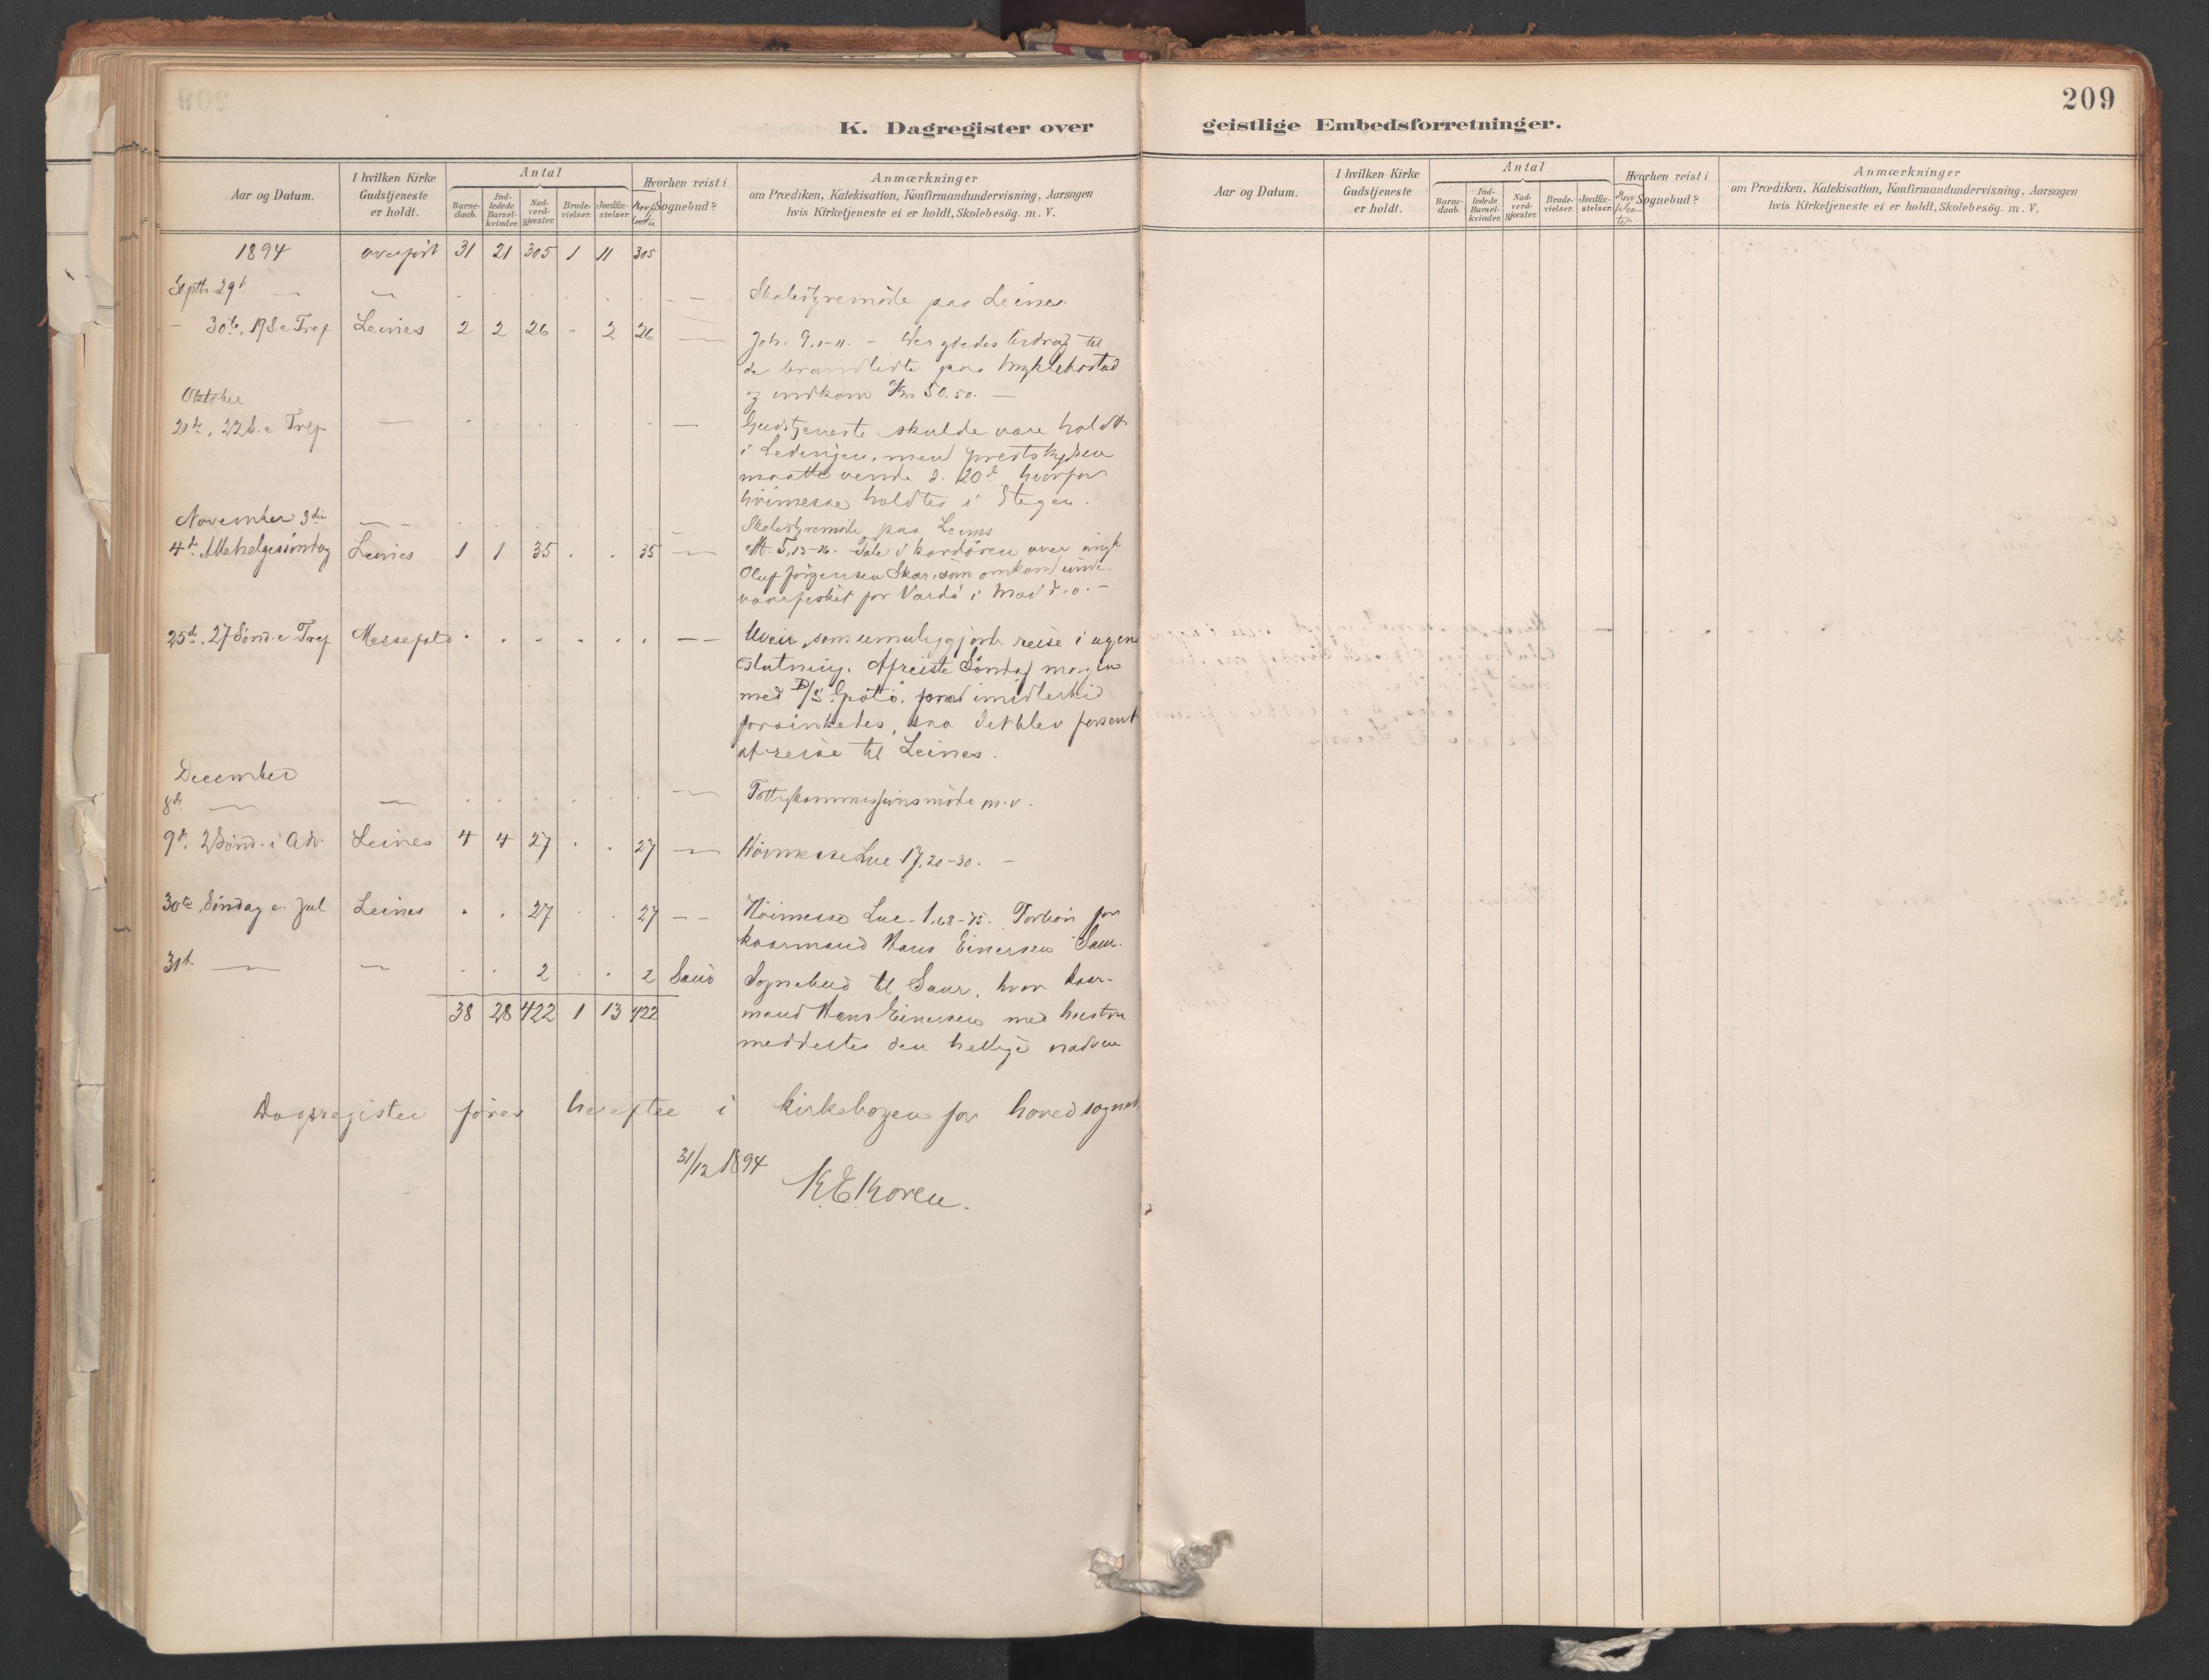 209
K. Dagregister over geistlige Embedsforretninger.
Aar og Datum.
I hvilken Kirke Gudstjeneste er holdt.
Antal
Barnedaab.
Indledede Barselkvinder.
Nadverdgjester.
Brudevielser.
Jordfæstelser.
Hvorhen reist i Sognebud?
Anmærkninger
om Prædiken, Katekisation, Konfirmandundervisning, Aarsagen
hvis Kirketjeneste ei er holdt, Skolebesög. m. V.
1894 overført 31 21 305 1 11 305
Septbr. 29de — — Skolestyremøde paa Leines.
— 30te, 19 S. e Tref Leines 2 2 26 - 2 26 — Joh. 9,1-11. -
de brandlidte paa Myklebostad
og indkom Kr 50.50. —
Oktober
21de, 22 S. e Tref — — Gudstjeneste skulde være holdt
i Ledingen, men prestskydsen
maatte vende d. 20de hvorfor
høimesse holdtes i Stegen.
November 3die — — Skolestyremøde paa Leines
4de Allehelgessøndag Leines 1 1 35 . . 35 — Mt. 5,13-16. Tale i kordøren over
Oluf Jörgensen Skar, som omkom under
vaarfisket for Vardø i Mai d. a. -
25de. 27 Sönd. e Tref Messefold . . - . . . — — Uveir, som umuliggjorde reise i ugens
Slutning. Afreiste Søndag morgen
med D/S. Grøtø, imidlertid
forsinkedes, saa det blev forsent
at reise til Leines.
December
8de — — — m. v.
9de. 2 Sönd. i Adv. Leines 4 4 27 . . 27 — Høimesse Luc 17,20-30. —
30te, Söndag e. Jul Leines . . 27 . . 27 — — Høimesse Luc. 1,68-75. Forbøn for
kaarmand Hans Einersen Saur.
31te — — . . 2 . . 2 Saur Sognebud til Saur, hvor kaar-
38 28 422 1 13 422 mand Hans Einersen med hustru
meddeltes den hellige nadver
Dagregister føres herefter i kirkebogen for hovedsognet
31/12 1894
K.E.Koren.
Aar og Datum.
I hvilken Kirke Gudstjeneste er holdt.
Antal
Barnedaab.
Indledede Barselkvinder.
Nadverdgjester.
Brudevielser.
Jordfæstelser.
Hvorhen reist i Sognebud?
Anmærkninger
om Prædiken, Katekisation, Konfirmandundervisning, Aarsagen
hvis Kirketjeneste ei er holdt, Skolebesög. m. V.